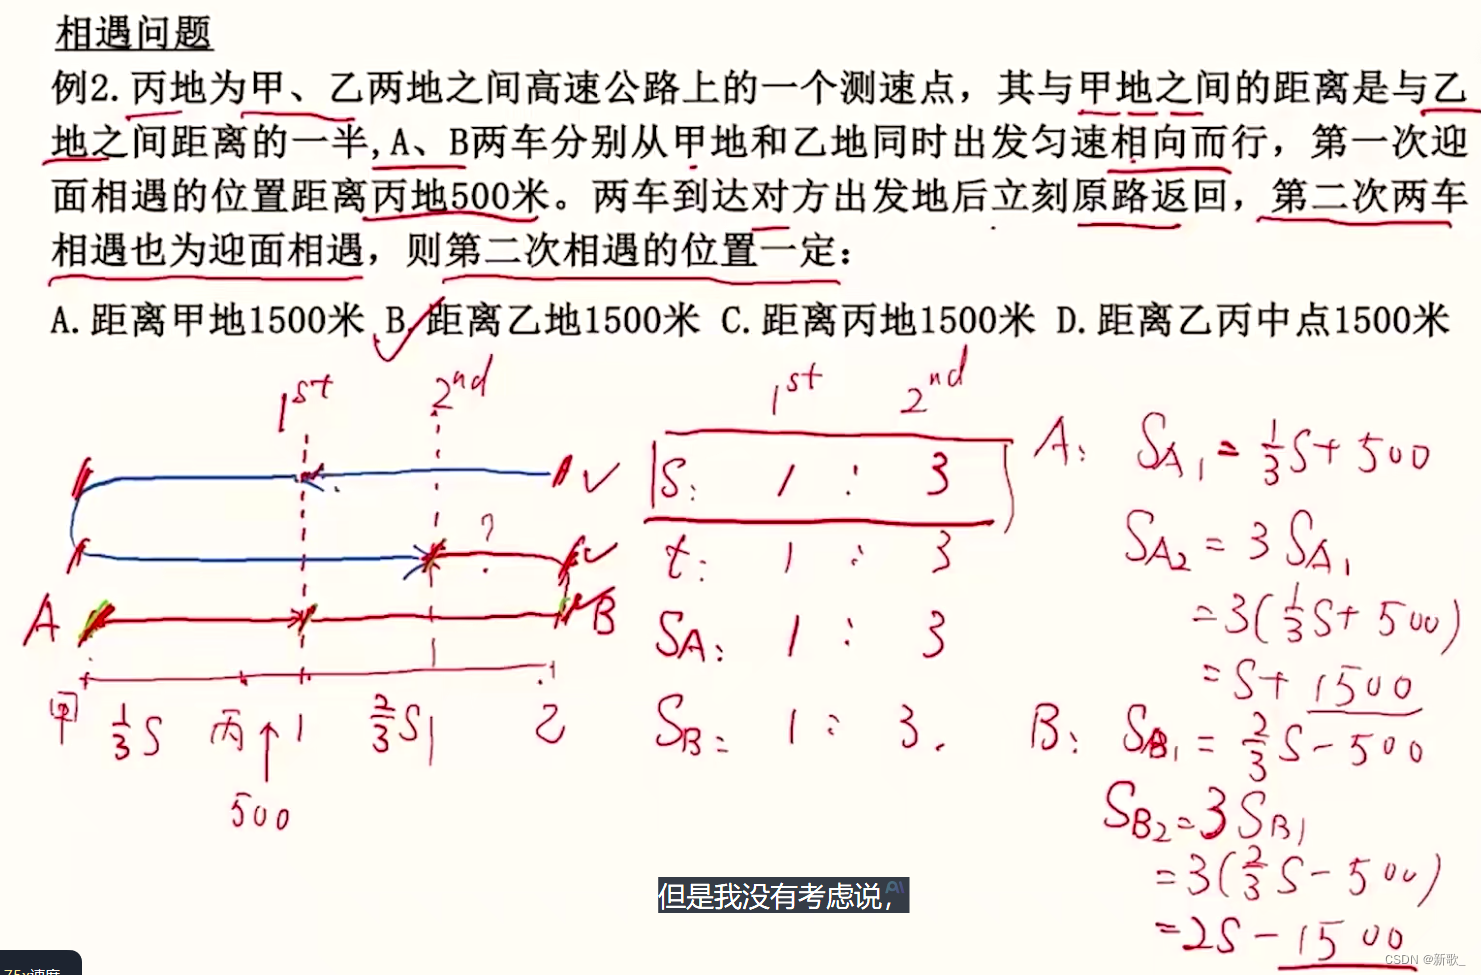 相遇问题
例2.丙地为甲、乙两地之间高速公路上的一个测速点，其与甲地之间的距离是与乙
地之间距离的一半,A、B两车分别从甲地和乙地同时出发匀速相向而行，第一次迎
面相遇的位置距离丙地500米。两车到达对方出发地后立刻原路返回，第二次两车
相遇也为迎面相遇，则第二次相遇的位置一定：
A.距离甲地1500米 B.距离乙地1500米 C.距离丙地1500米 D.距离乙丙中点1500米
1st 2nd
?
A B
甲 1/3 S 丙 1 2/3 S 乙
500
1st 2nd
S: 1 : 3
t: 1 : 3
SA: 1 : 3
SB: 1 : 3.
A: SA1 = 1/3 S + 500
SA2 = 3 SA1
= 3(1/3 S + 500)
= S + 1500
B: SB1 = 2/3 S - 500
SB2 = 3 SB1
= 3(2/3 S - 500)
= 2S - 1500
但是我没有考虑说，
CSDN @新歌_